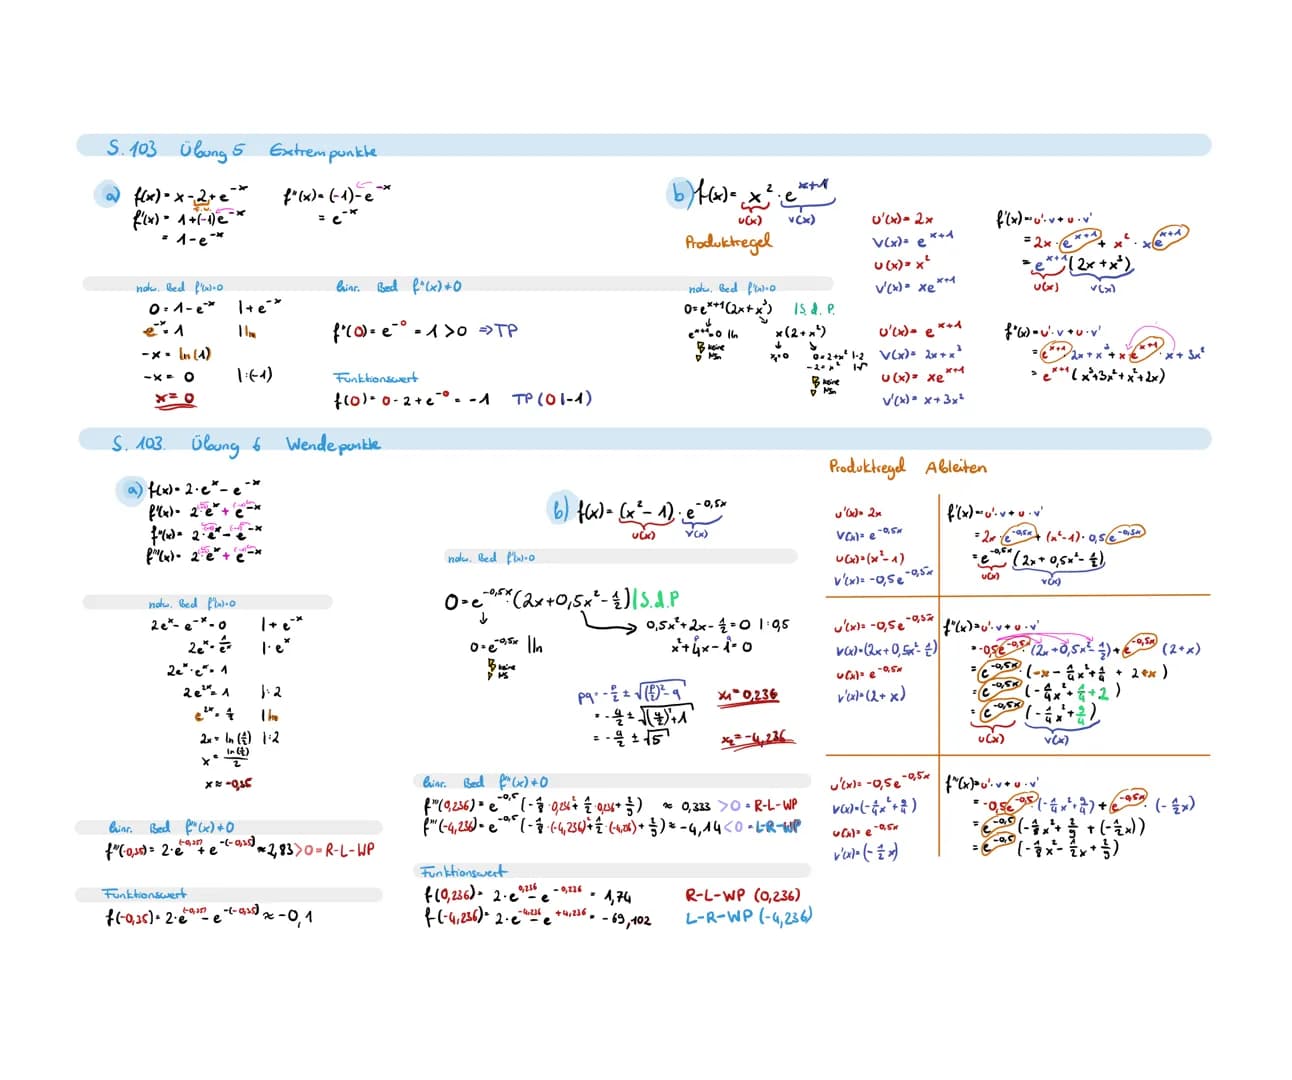 S. 103 Übung 5 Extrempunkte
a) f(x) = x - 2 + e^-x
f'(x) = 1 + (-1)e^-x
= 1 - e^-x
f''(x) = (-1) - e^-x
= e^-x
notw. Bed f'(x)=0
0 = 1 - e^-x |+e^-x
e^-x = 1 | ln
-x = ln(1)
-x = 0 | :(-1)
x = 0
hinr. Bed f''(x)≠0
f''(0) = e^-0 = 1 > 0 ⇒ TP
Funktionswert
f(0) = 0 - 2 + e^-0 = -1 TP (0|-1)
b) f(x) = x² · e^x+1
u(x) v(x)
Produktregel
u'(x) = 2x
v(x) = e^x+1
u(x) = x²
v'(x) = xe^x+1
f'(x) = u'·v + u·v'
= 2x · e^x+1 + x² · xe^x+1
= e^x+1 (2x + x³)
u(x) v(x)
notw. Bed f'(x)=0
0 = e^x+1 (2x + x³) | S.d.P.
e^x+1 = 0 | ln
keine
x(2 + x²)
x₁ = 0
0 = 2 + x² |-2
-2 = x² |√
keine
u'(x) = e^x+1
v(x) = 2x + x³
u(x) = xe^x+1
v'(x) = x + 3x²
f''(x) = u'·v + u·v'
= e^x+1 · 2x + x³ + x e^x+1 · x + 3x²
= e^x+1 (x³ + 3x² + x² + 2x)
S. 103. Übung 6 Wendepunkte
a) f(x) = 2·e^x - e^-x
f'(x) = 2·e^x + e^-x
f''(x) = 2·e^x - e^-x
f'''(x) = 2·e^x + e^-x
notw. Bed f''(x)=0
2e^x - e^-x = 0 |+e^-x
2e^x = 1/e^x | ·e^x
2e^x · e^x = 1
2e^2x = 1 | :2
e^2x = 1/2 | ln
2x = ln(1/2) | :2
x = ln(1/2)/2
x ≈ -0,35
hinr. Bed f'''(x)≠0
f'''(-0,35) = 2·e^(-0,35) + e^-(-0,35) ≈ 2,83 > 0 = R-L-WP
Funktionswert
f(-0,35) = 2·e^(-0,35) - e^-(-0,35) ≈ -0,1
b) f(x) = (x² - 1) · e^-0,5x
u(x) v(x)
notw. Bed f'(x)=0
0 = e^-0,5x · (2x + 0,5x² - 1/2) | S.d.P
0 = e^-0,5x | ln
keine
0,5x² + 2x - 1/2 = 0 | :0,5
x² + 4x - 1 = 0
p q
pq = -p/2 ± √((p/2)² - q)
= -4/2 ± √((4/2)² + 1)
= -4/2 ± √5
x₁ = 0,236
x₂ = -4,236
hinr. Bed f'''(x)≠0
f'''(0,236) = e^-0,5 (-1/8 · 0,236² + 1/2 · 0,236 + 1/9) ≈ 0,333 > 0 = R-L-WP
f'''(-4,236) = e^-0,5 (-1/8 · (-4,236) + 1/2 · (-4,236) + 1/9) ≈ -4,14 < 0 = L-R-WP
Funktionswert
f(0,236) = 2·e^0,236 - e^-0,236 = 1,74
f(-4,236) = 2·e^-4,236 - e^+4,236 = -69,102
R-L-WP (0,236)
L-R-WP (-4,236)
Produktregel Ableiten
u'(x) = 2x
v(x) = e^-0,5x
u(x) = (x² - 1)
v'(x) = -0,5e^-0,5x
f'(x) = u'·v + u·v'
= 2x · e^-0,5x + (x² - 1) · 0,5e^-0,5x
= e^-0,5x (2x + 0,5x² - 1/2)
u(x) v(x)
u'(x) = -0,5e^-0,5x
v(x) = (2x + 0,5x² - 1/2)
u(x) = e^-0,5x
v'(x) = (2 + x)
f''(x) = u'·v + u·v'
= -0,5e^-0,5x · (2x + 0,5x² - 1/2) + e^-0,5x (2 + x)
= e^-0,5x · (-x - 1/4x² + 1/4 + 2 + x)
= e^-0,5x (-1/4x² + 1/4 + 2)
= e^-0,5x (-1/4x² + 9/4)
u(x) v(x)
u'(x) = -0,5e^-0,5x
v(x) = (-1/4x² + 9/4)
u(x) = e^-0,5x
v'(x) = (-1/2x)
f'''(x) = u'·v + u·v'
= -0,5e^-0,5 · (-1/4x² + 9/4) + e^-0,5x · (-1/2x)
= e^-0,5 (-1/8x² + 1/9 + (-1/2x))
= e^-0,5 (-1/8x - 1/2x + 1/9)